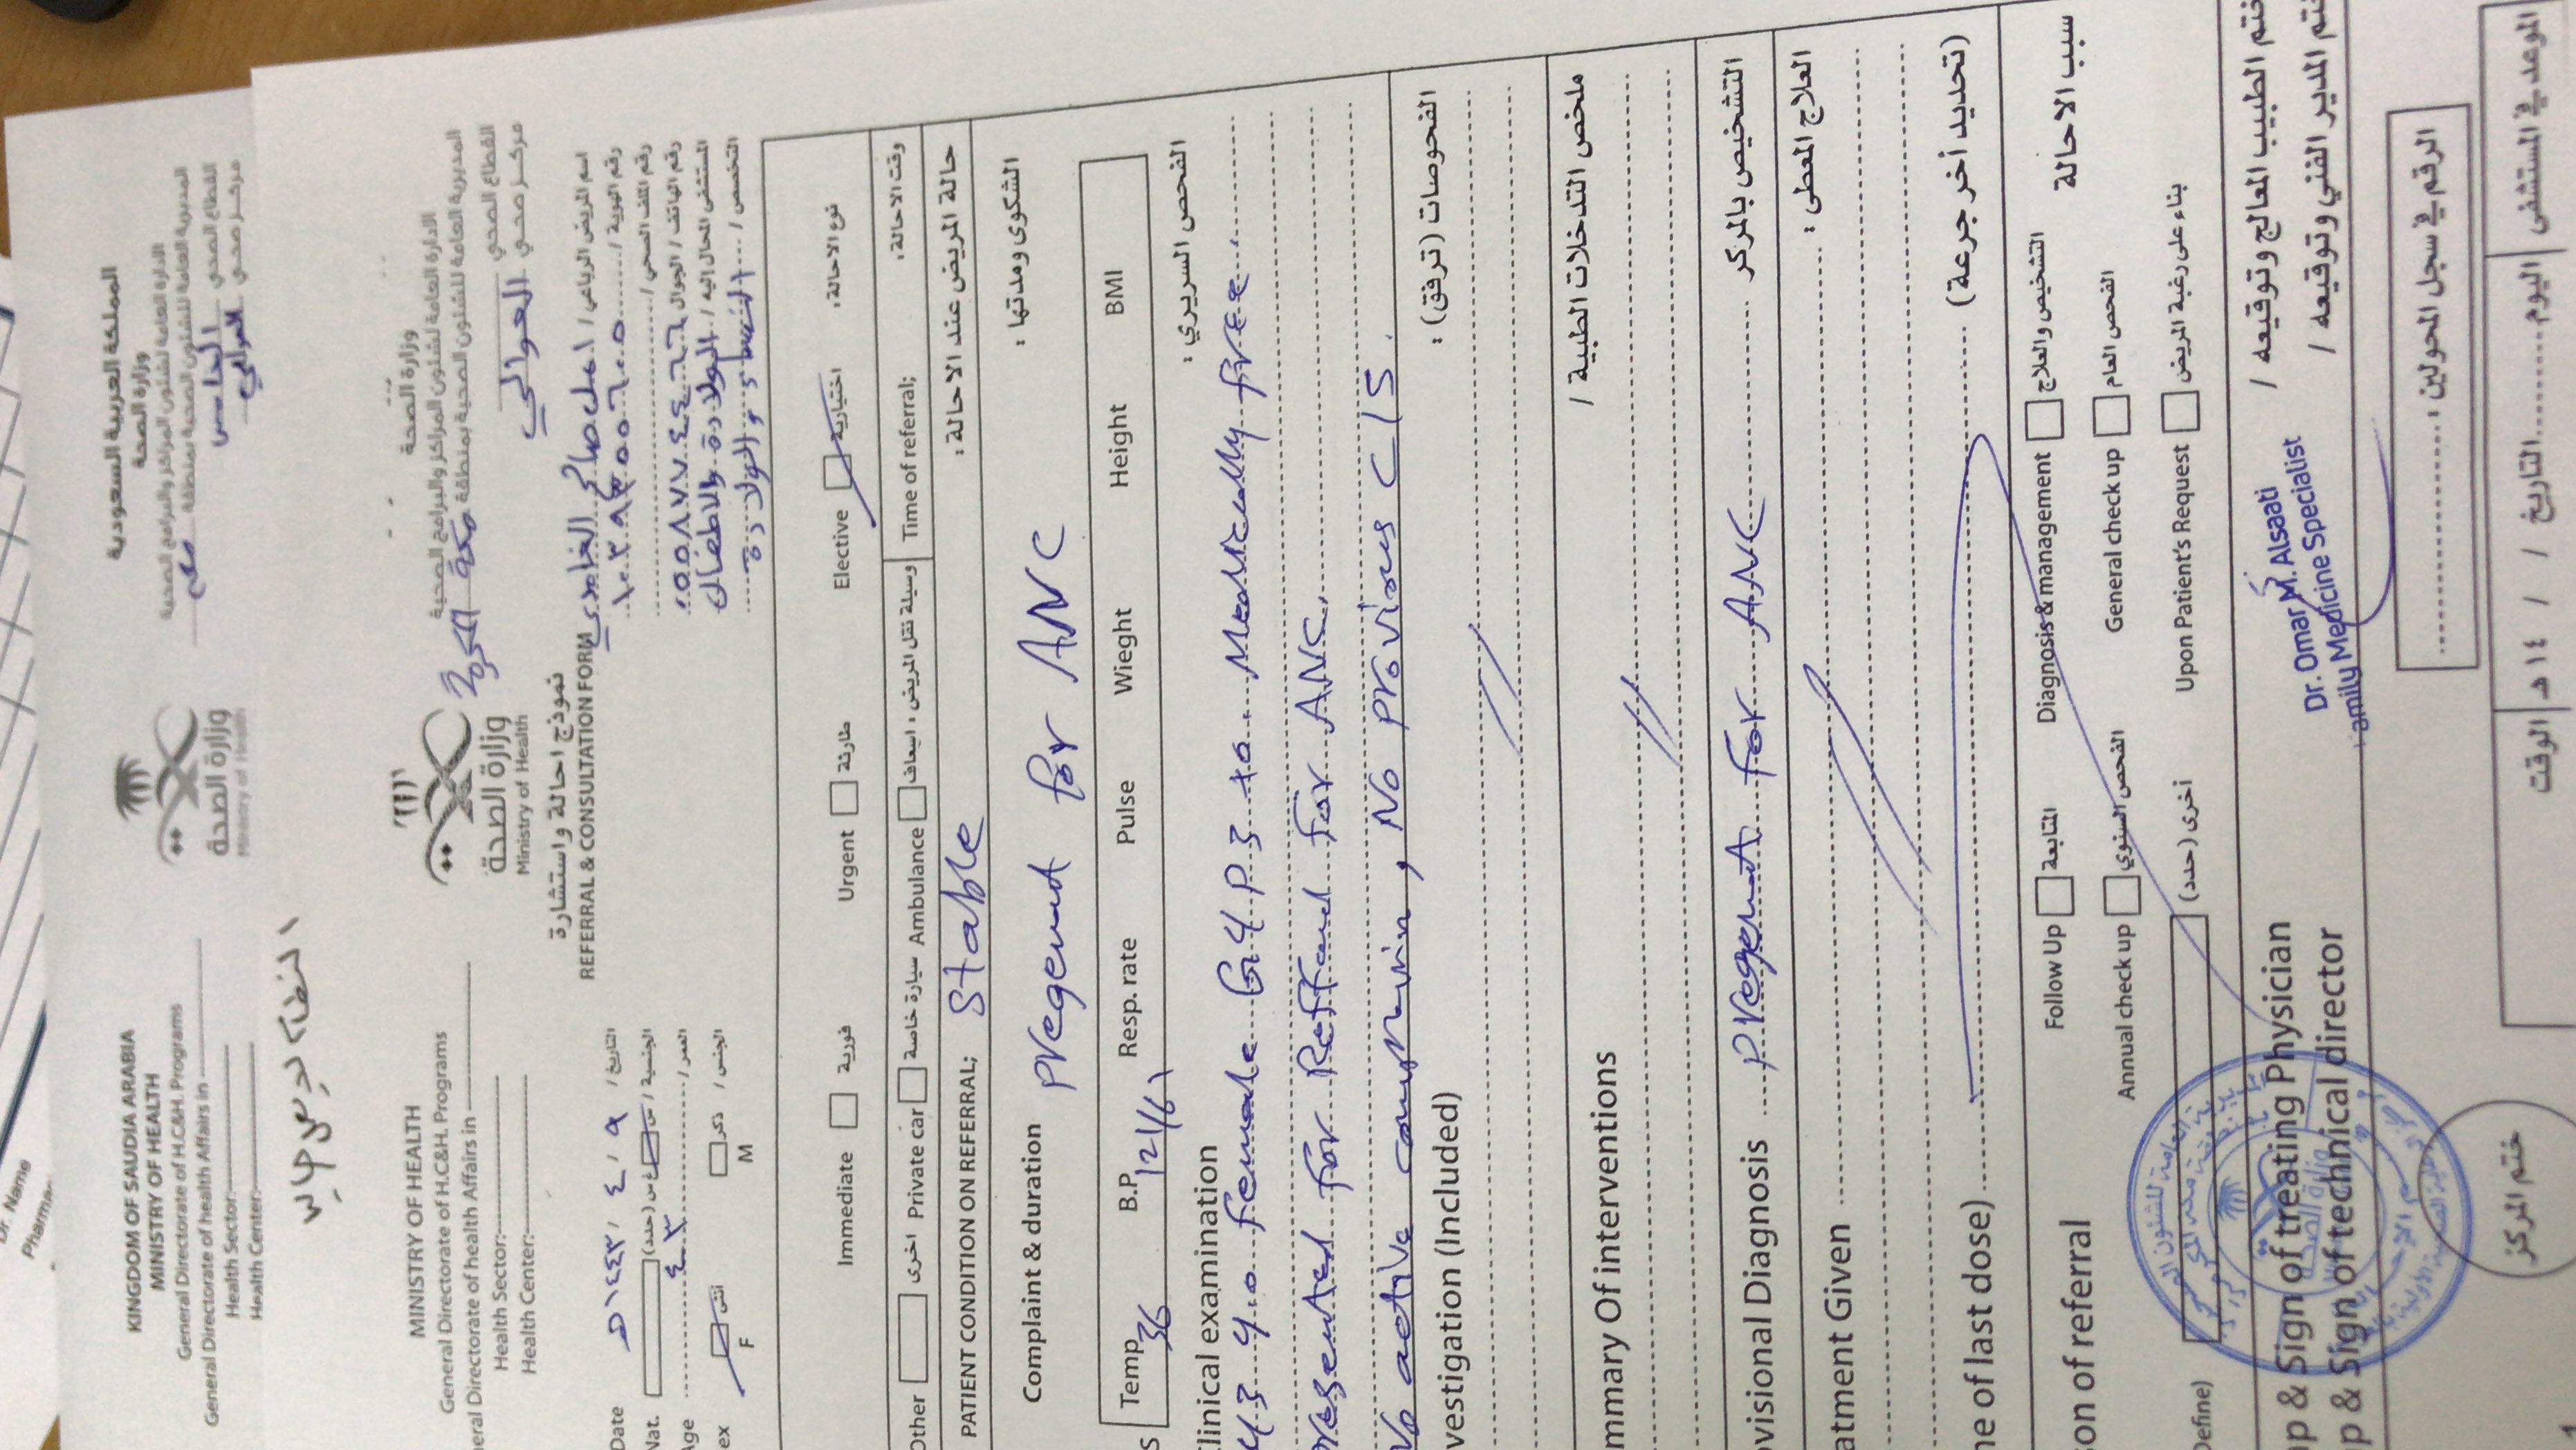 Dr. Name
KINGDOM OF SAUDIA ARABIA
MINISTRY OF HEALTH
General Directorate of H.C&H. Programs
General Directorate of health Affairs in
Health Sector:
Health Center:
وزارة الصحة
Ministry of Health
المملكة العربية السعودية
وزارة الصحة
الادارة العامة لشئون المراكز والبرامج الصحية
المديرية العامة للشئون الصحية بمنطقة مكة
القطاع الصحي
مركز صحي العوالي
النظام لا يعمل حاليا
MINISTRY OF HEALTH
General Directorate of H.C&H. Programs
eral Directorate of health Affairs in
Health Sector:
Health Center:
وزارة الصحة
Ministry of Health
وزارة الصحة
الادارة العامة لشئون المراكز والبرامج الصحية
المديرية العامة للشئون الصحية بمنطقة مكة المكرمة
القطاع الصحي
مركز صحي العوالي
نموذج احالة واستشارة
REFERRAL & CONSULTATION FORM
اسم المريض الرباعي / امل صالح الغامدي
Date ٩ / ٤ / ١٤٤٣هـ التاريخ /
رقم الهوية /
Nat. غ س (حدد) س الجنسية /
رقم الملف الصحي /
Age ٤٣ العمر /
رقم الهاتف / الجوال ٠٥٥٨٧٧٤٤٦٦
ex أنثى ذكر الجنس /
F M
المستشفى المحال إليه / الولادة والاطفال
التخصص / النساء والولادة
Immediate فورية Urgent طارئة Elective اختيارية نوع الاحالة :
Other اخرى Private car سيارة خاصة Ambulance وسيلة نقل المريض : اسعاف Time of referral; وقت الاحالة :
PATIENT CONDITION ON REFERRAL; Stable حالة المريض عند الاحالة :
Complaint & duration الشكوى ومدتها :
pregenut for ANC
Temp 36 B.P 121/61 Resp. rate Pulse Wieght Height BMI
linical examination الفحص السريري :
43 y.o female G4 P3 +0. Medically free.
resented for Refferd for ANC.
No active complain, No provious C/S.
vestigation (Included) الفحوصات (ترفق) :
mmary Of interventions ملخص التدخلات الطبية /
ovisional Diagnosis pregenut for ANC التشخيص بالمركز
atment Given العلاج المعطى :
ne of last dose) (تحديد أخر جرعة)
on of referral سبب الاحالة
Follow Up المتابعة Diagnosis & management التشخيص والعلاج
Annual check up الفحص السنوي General check up الفحص العام
Define) أخرى (حدد) Upon Patient's Request بناء على رغبة المريض
p & Sign of treating Physician ختم الطبيب المعالج وتوقيعه /
Dr. Omar M. Alsaati
amily Medicine Specialist
p & Sign of technical director ختم المدير الفني وتوقيعه /
الرقم في سجل المحولين :
ختم المركز
الموعد في المستشفى اليوم التاريخ / / ١٤ هـ الوقت